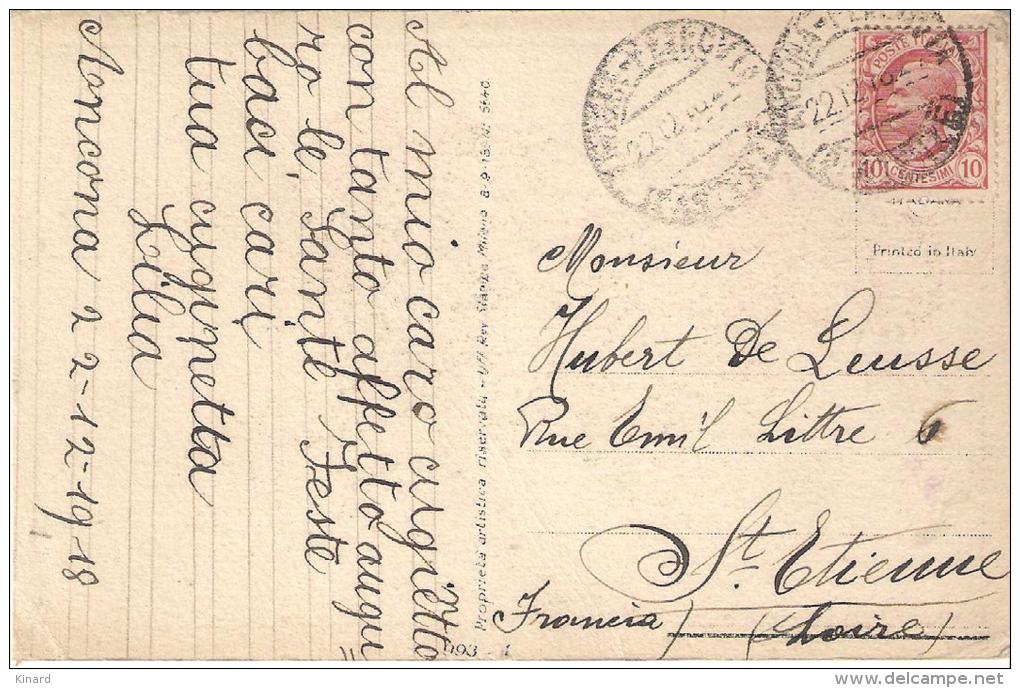 Al mio caro cuginetto
con tanto affetto augu
ro le, Sante Feste
baci cari
tua cuginetta
Lilia
Ancona 22-12-1918
Proprietà artistica riservata - Uff. Rev. Stampa Milano 8-9-18. N. 5640
093 - 1
22.12.18
22.12.18
POSTE ITALIANE
10 CENTESIMI 10
ITALIANA
Printed in Italy
Monsieur
Hubert De Leusse
Rue Emil Littre 6
St. Etienne
Francia (Loire)
Kinard